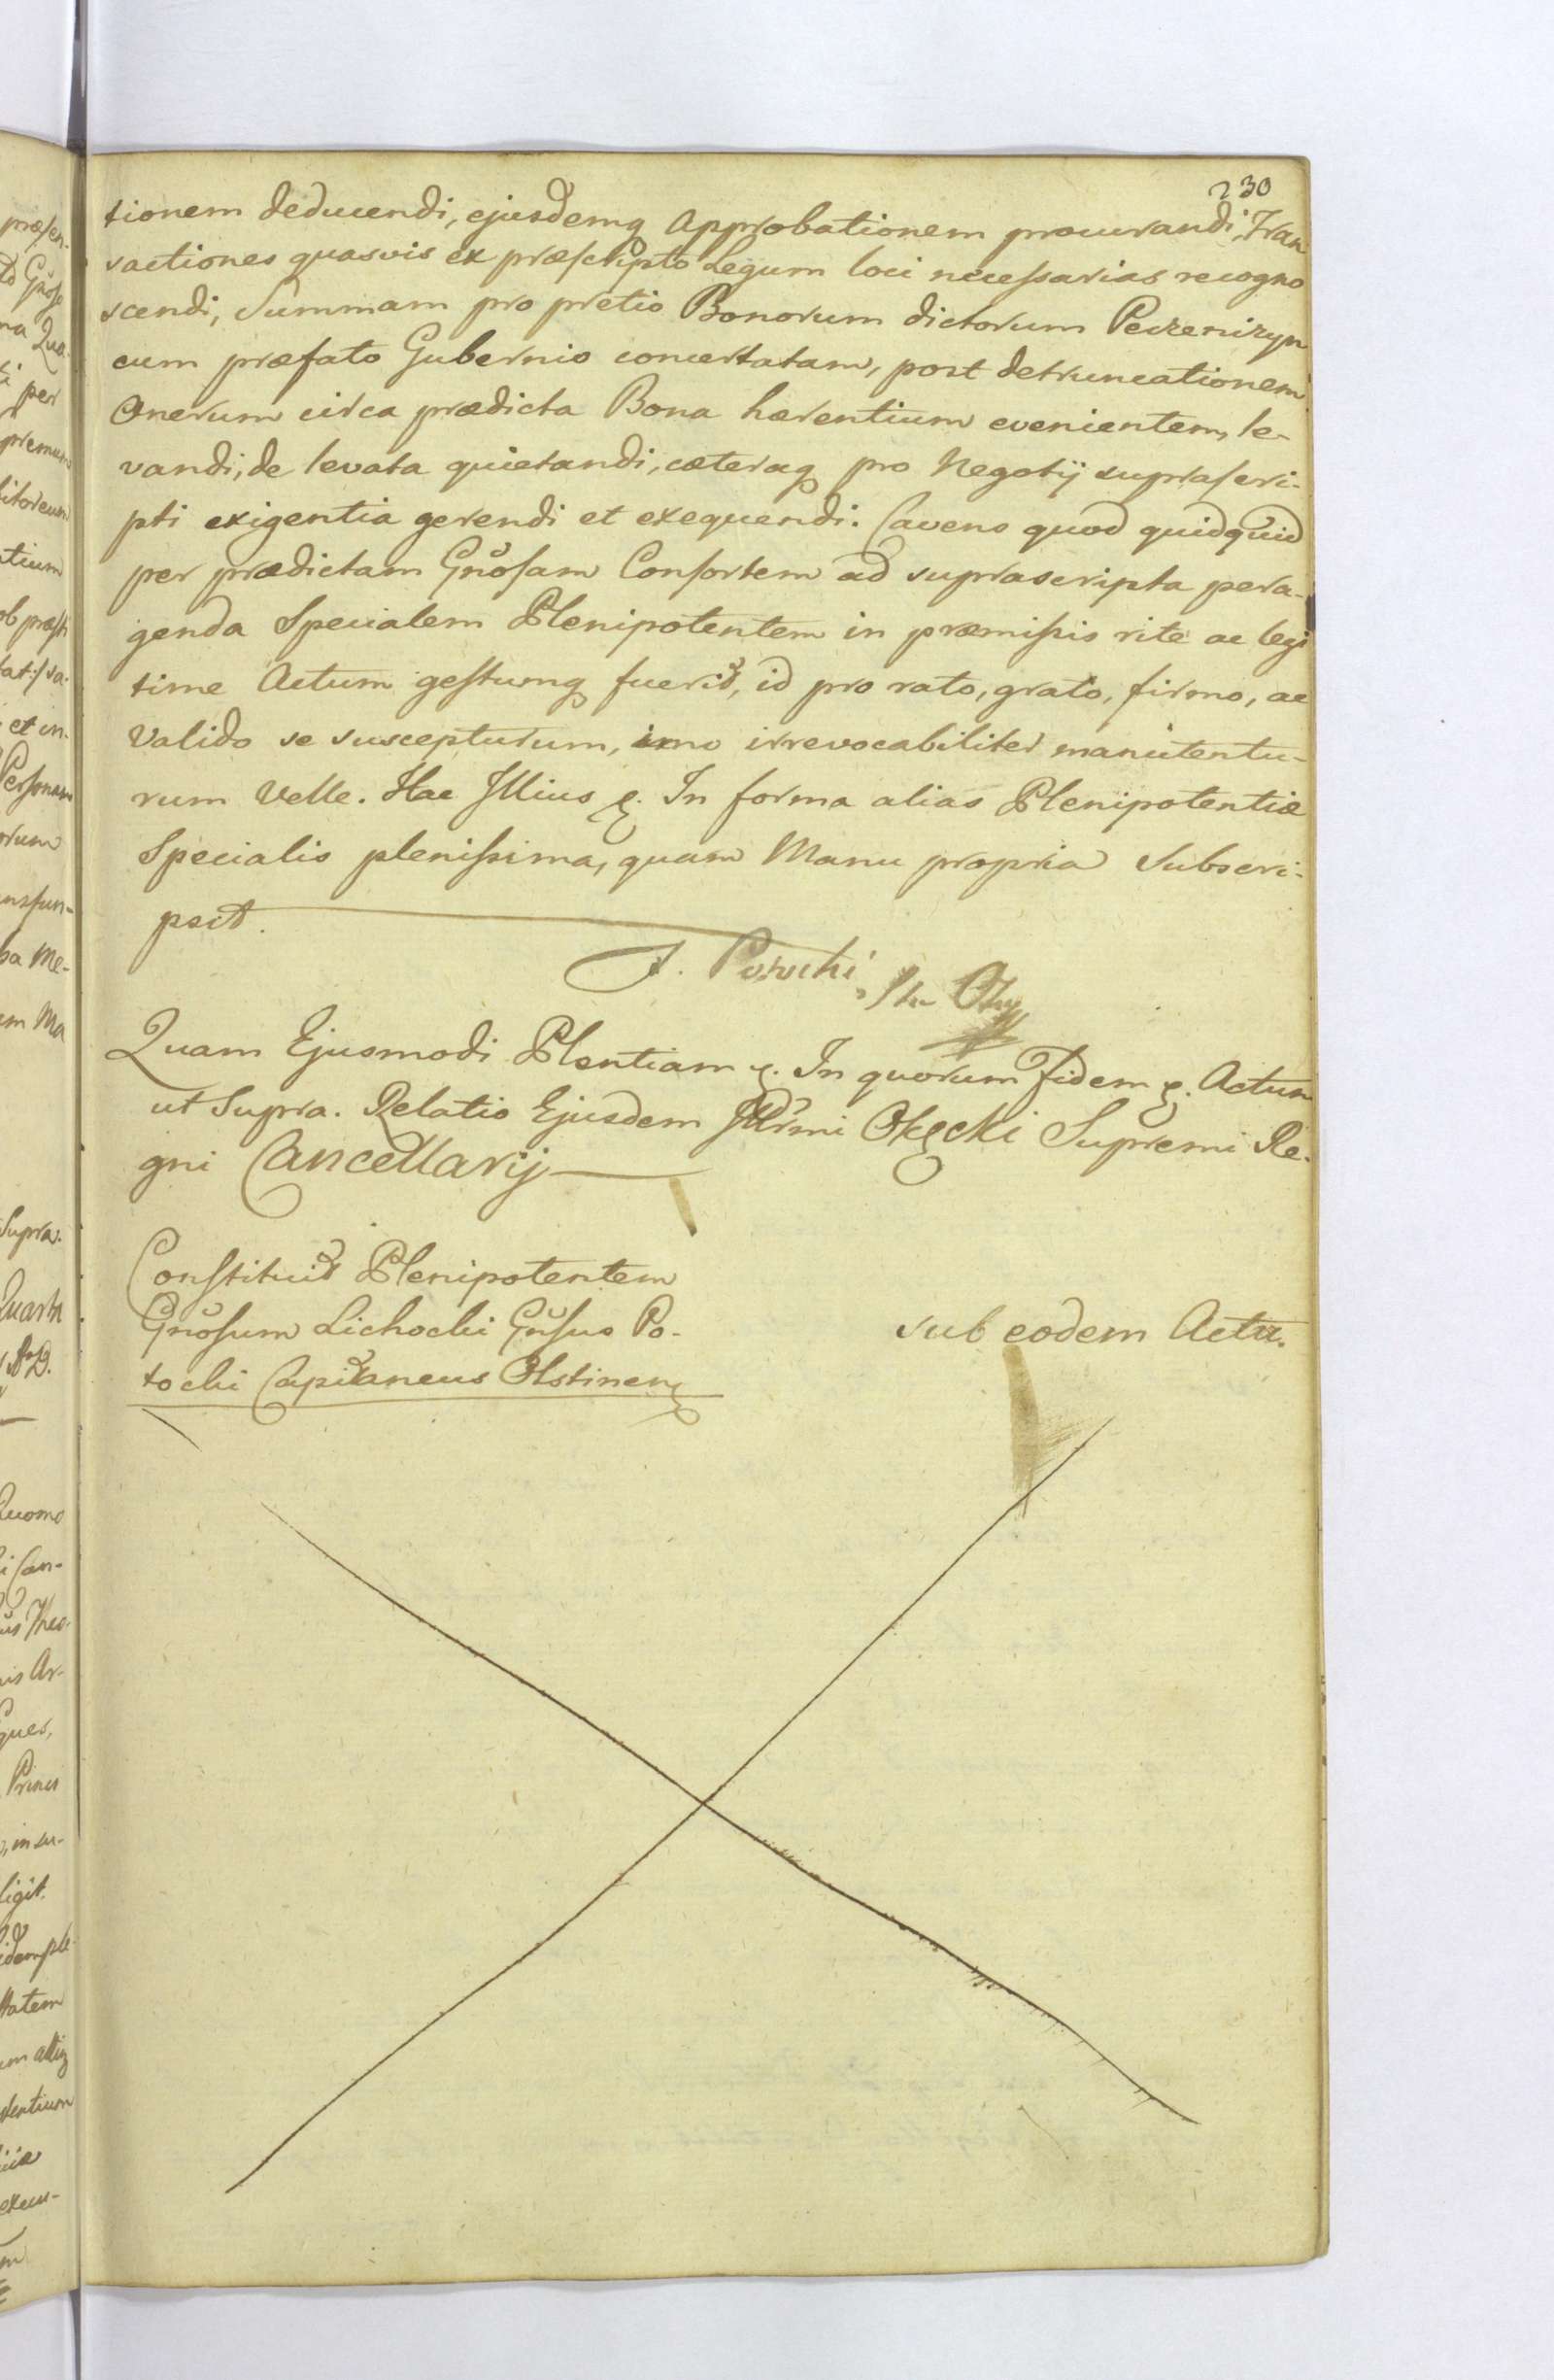 230
tionem deducendi, ejusdemq Approbationem procurandi, Tran
sactiones quasvis ex præscripto Legum loci necessarias recogno
scendi, Summam pro pretio Bonorum dictorum Peczenizyn
cum præfato Gubernio concertatam, post detruncationem
Onerum circa prædicta Bona hærentium evenientem, le-
vandi, de levata quietandi, cæteraq pro Negotij suprascri-
pti exigentia gerendi et exequendi. Cavens quod quidquid
per prædictam Gnosam Consortem ad suprascripta pera-
genda Specialem Plenipotentem in præmissis rite ac legi
time Actum gestumq fuerit, id pro rato, grato, firmo, ac
Valido se suscepturum, imo irrevocabiliter manutentu-
rum Velle. Hac Illius &. In forma alias Plenipotentiæ
Specialis plenissima, quam Manu propria Subscri-
psit.
J. Potocki
Quam Ejusmodi Plentiam &. In quorum Fidem &. Actum
ut Supra. Relatio Ejusdem Illrmi Okęcki Supremi Re-
gni Cancellarij
Constituit Plenipotentem
Gnosum Lichocki Gnsus Po-
tocki Capitaneus Olstinen
sub eodem Actu.
præsen-
per
et in-
Personam
orum
ba Me-
em Ma
Supra.
Quarta
Quomo
Princi
ligit.